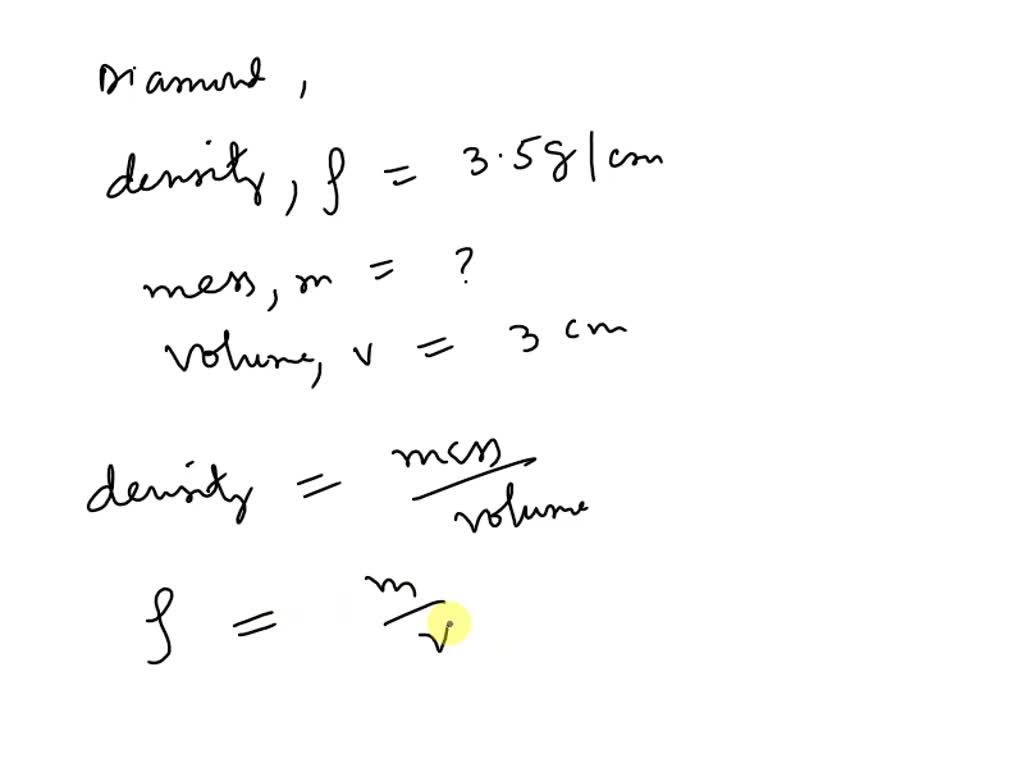 Diamond,
density, ρ = 3.5g/cm
mass, m = ?
volume, v = 3 cm
density = mass/volume
ρ = m/v